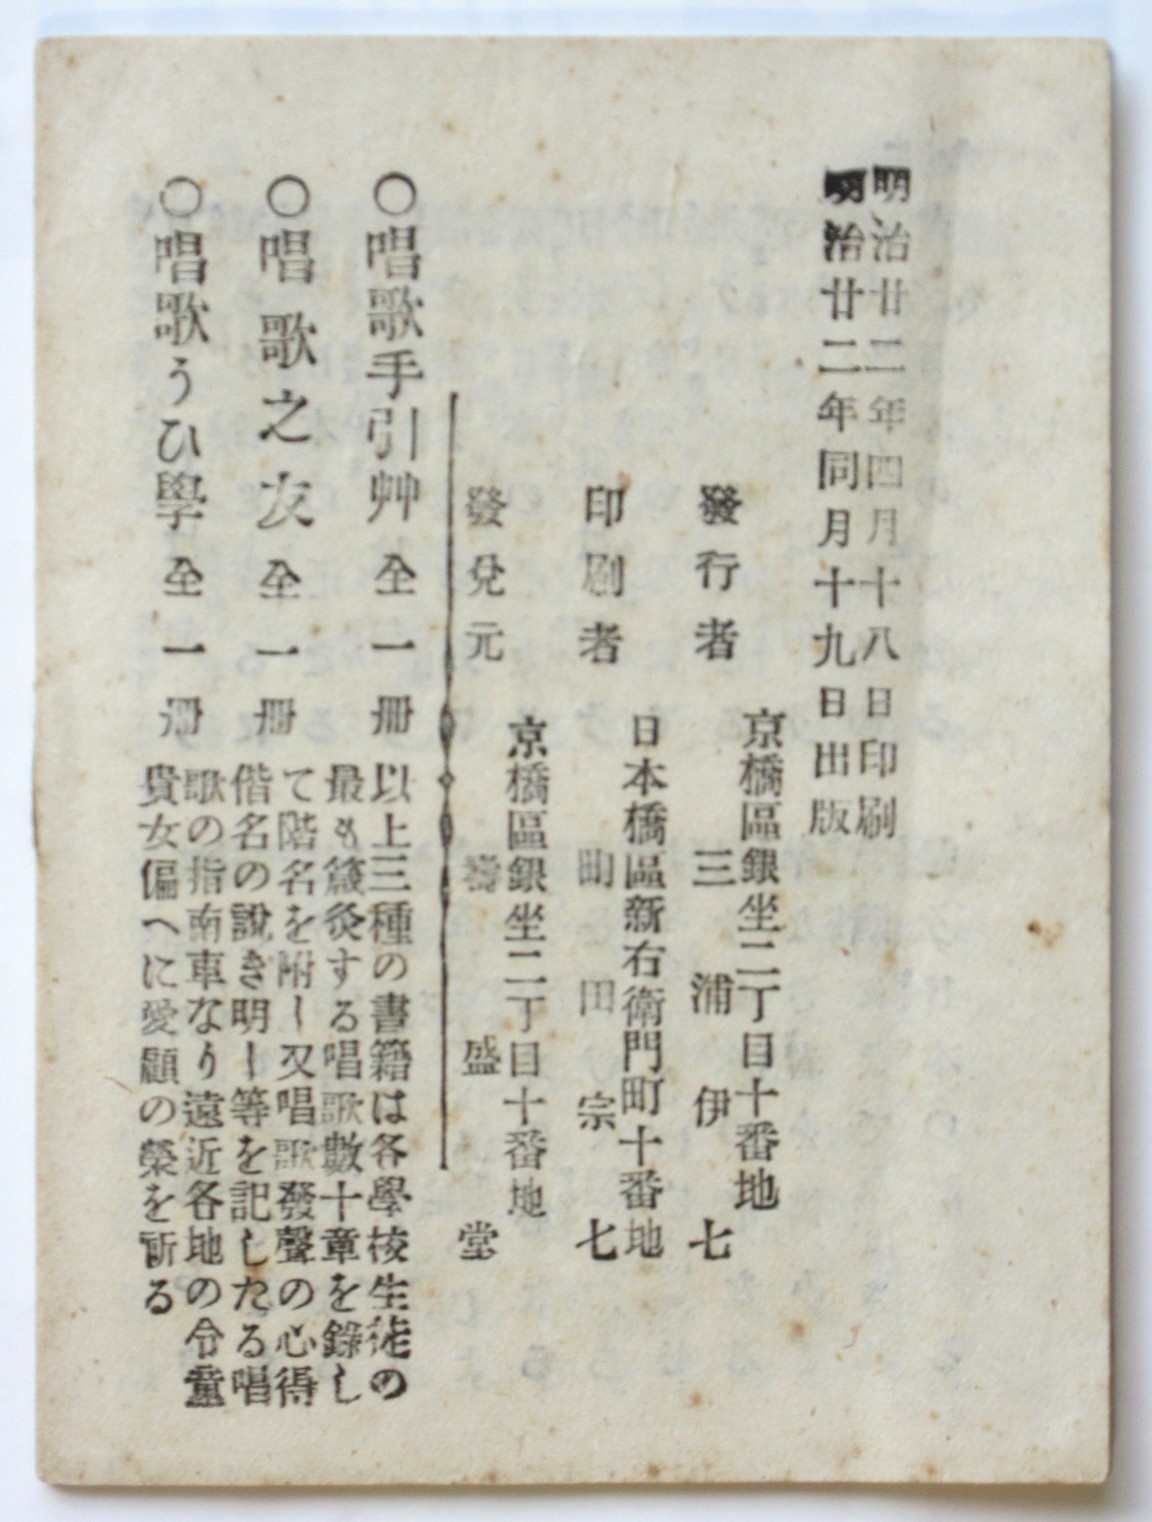 明治廿二年四月十八日印刷
明治廿二年同月十九日出版
京橋區銀坐二丁目十番地
發行者 三浦伊七
日本橋區新右衛門町十番地
印刷者 町田宗七
京橋區銀坐二丁目十番地
發兌元 壽盛堂
○唱歌手引艸 全一冊
○唱歌之友 全一冊
○唱歌うひ學 全一冊
以上三種の書籍は各學校生徒の
最も箴灸する唱歌數十章を錄し
て階名を附し又唱歌發聲の心得
偕名の說き明し等を記したる唱
歌の指南車なり遠近各地の令童
貴女偏へに愛顧の榮を祈る